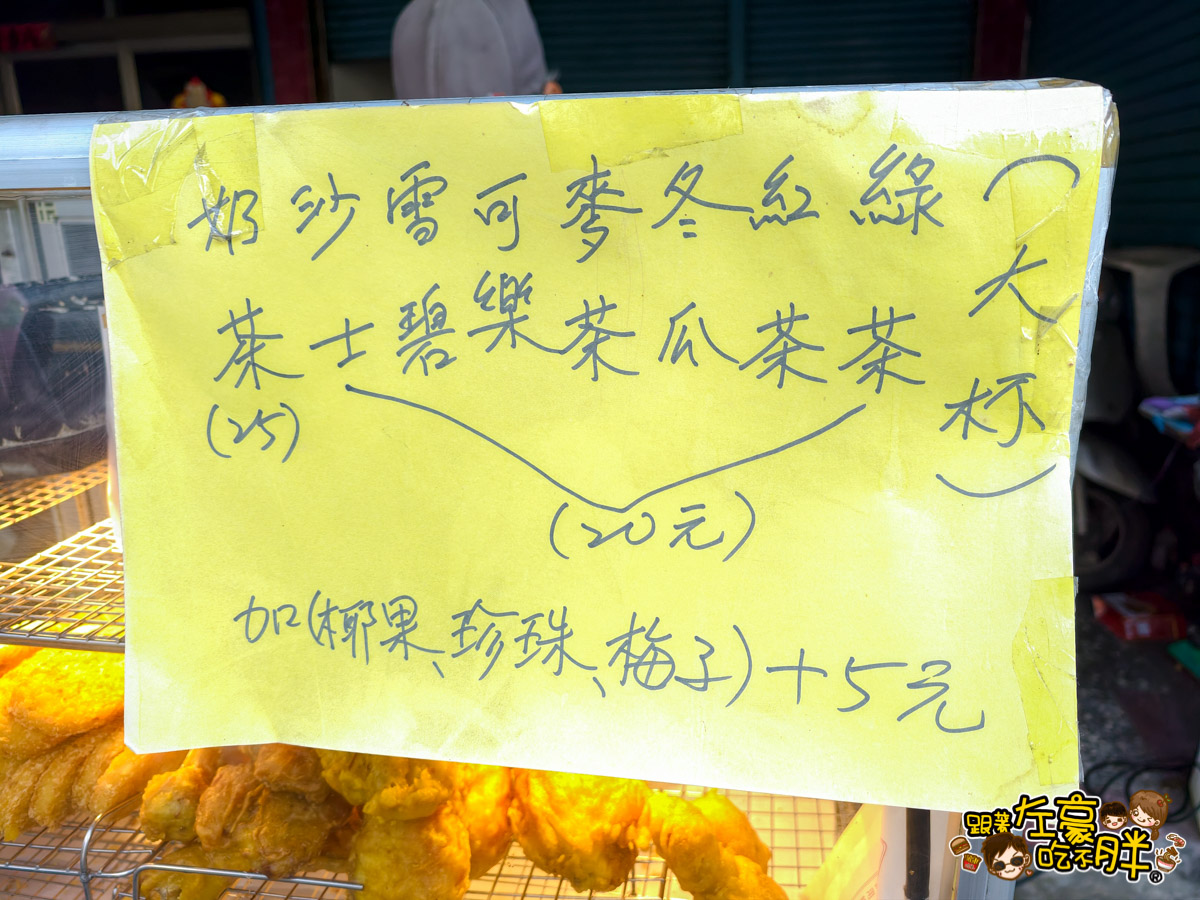 （大杯）
綠茶
紅茶
冬瓜
麥茶
可樂
雪碧
沙士
奶茶
(25)
(20元)
加(椰果、珍珠、梅子)+5元
跟著左豪吃不胖®